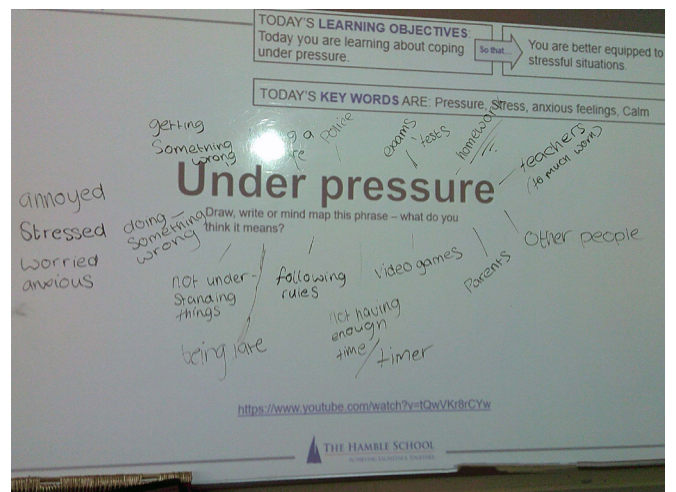 TODAY'S LEARNING OBJECTIVES:
Today you are learning about coping
under pressure.
So that...
You are better equipped to
stressful situations.
TODAY'S KEY WORDS ARE: Pressure, Stress, anxious feelings, Calm
getting
something
wrong
g a
re
police
exams
tests
homework
teachers
(to much work)
Under pressure
Draw, write or mind map this phrase – what do you
think it means?
annoyed
Stressed
worried
anxious
doing
something
wrong
not under-
standing
things
following
rules
video games
Parents
Other people
being late
not having
enough
time / timer
https://www.youtube.com/watch?v=tQwVKr8rCYw
THE HAMBLE SCHOOL